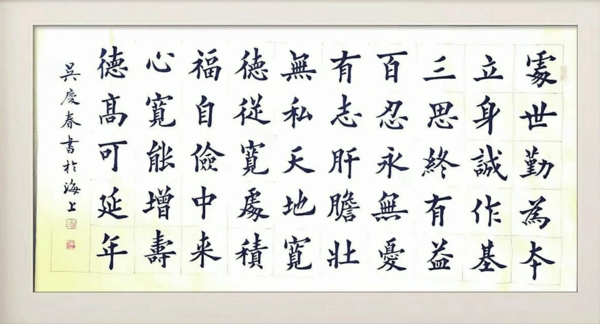 處世勤為本
立身誠作基
三思終有益
百忍永無憂
有志肝膽壯
無私天地寬
德從寬處積
福自儉中来
心寬能增壽
德高可延年
吳慶春書於海上